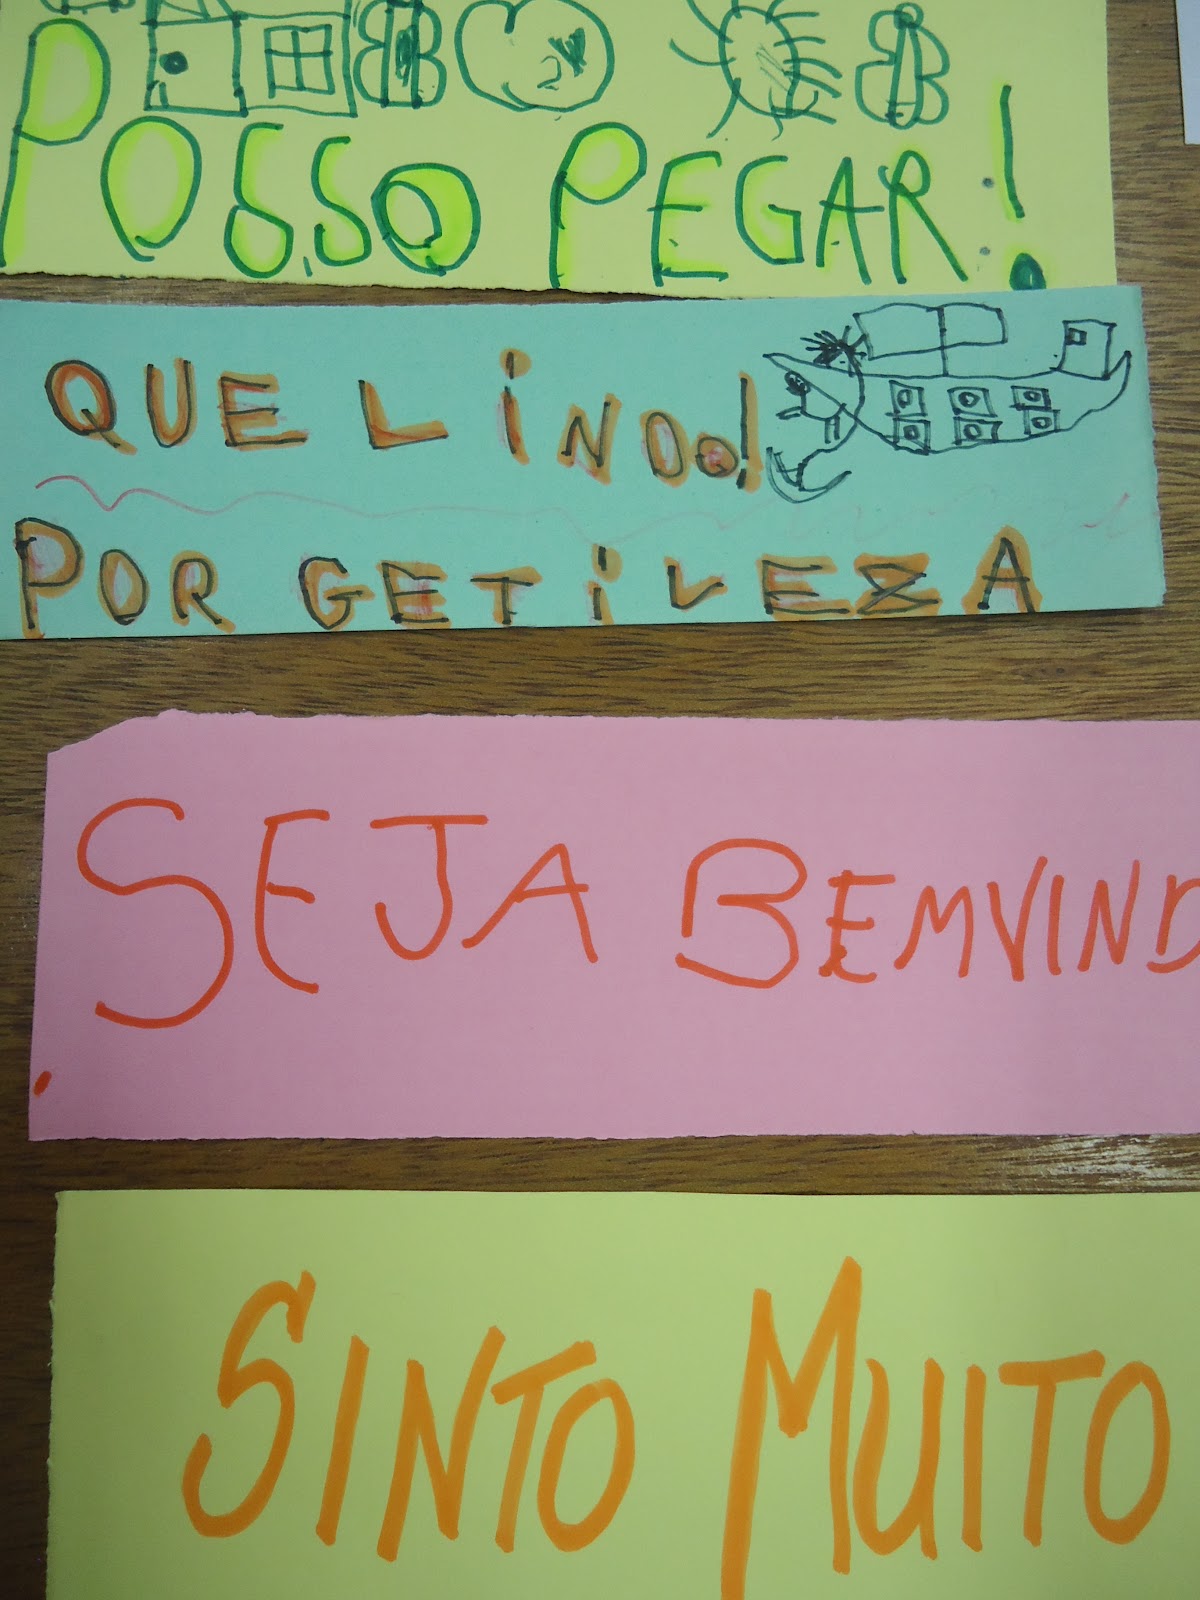 POSSO PEGAR!
QUE LINDO!
POR GETILEZA
SEJA BEMVIND
SINTO MUITO